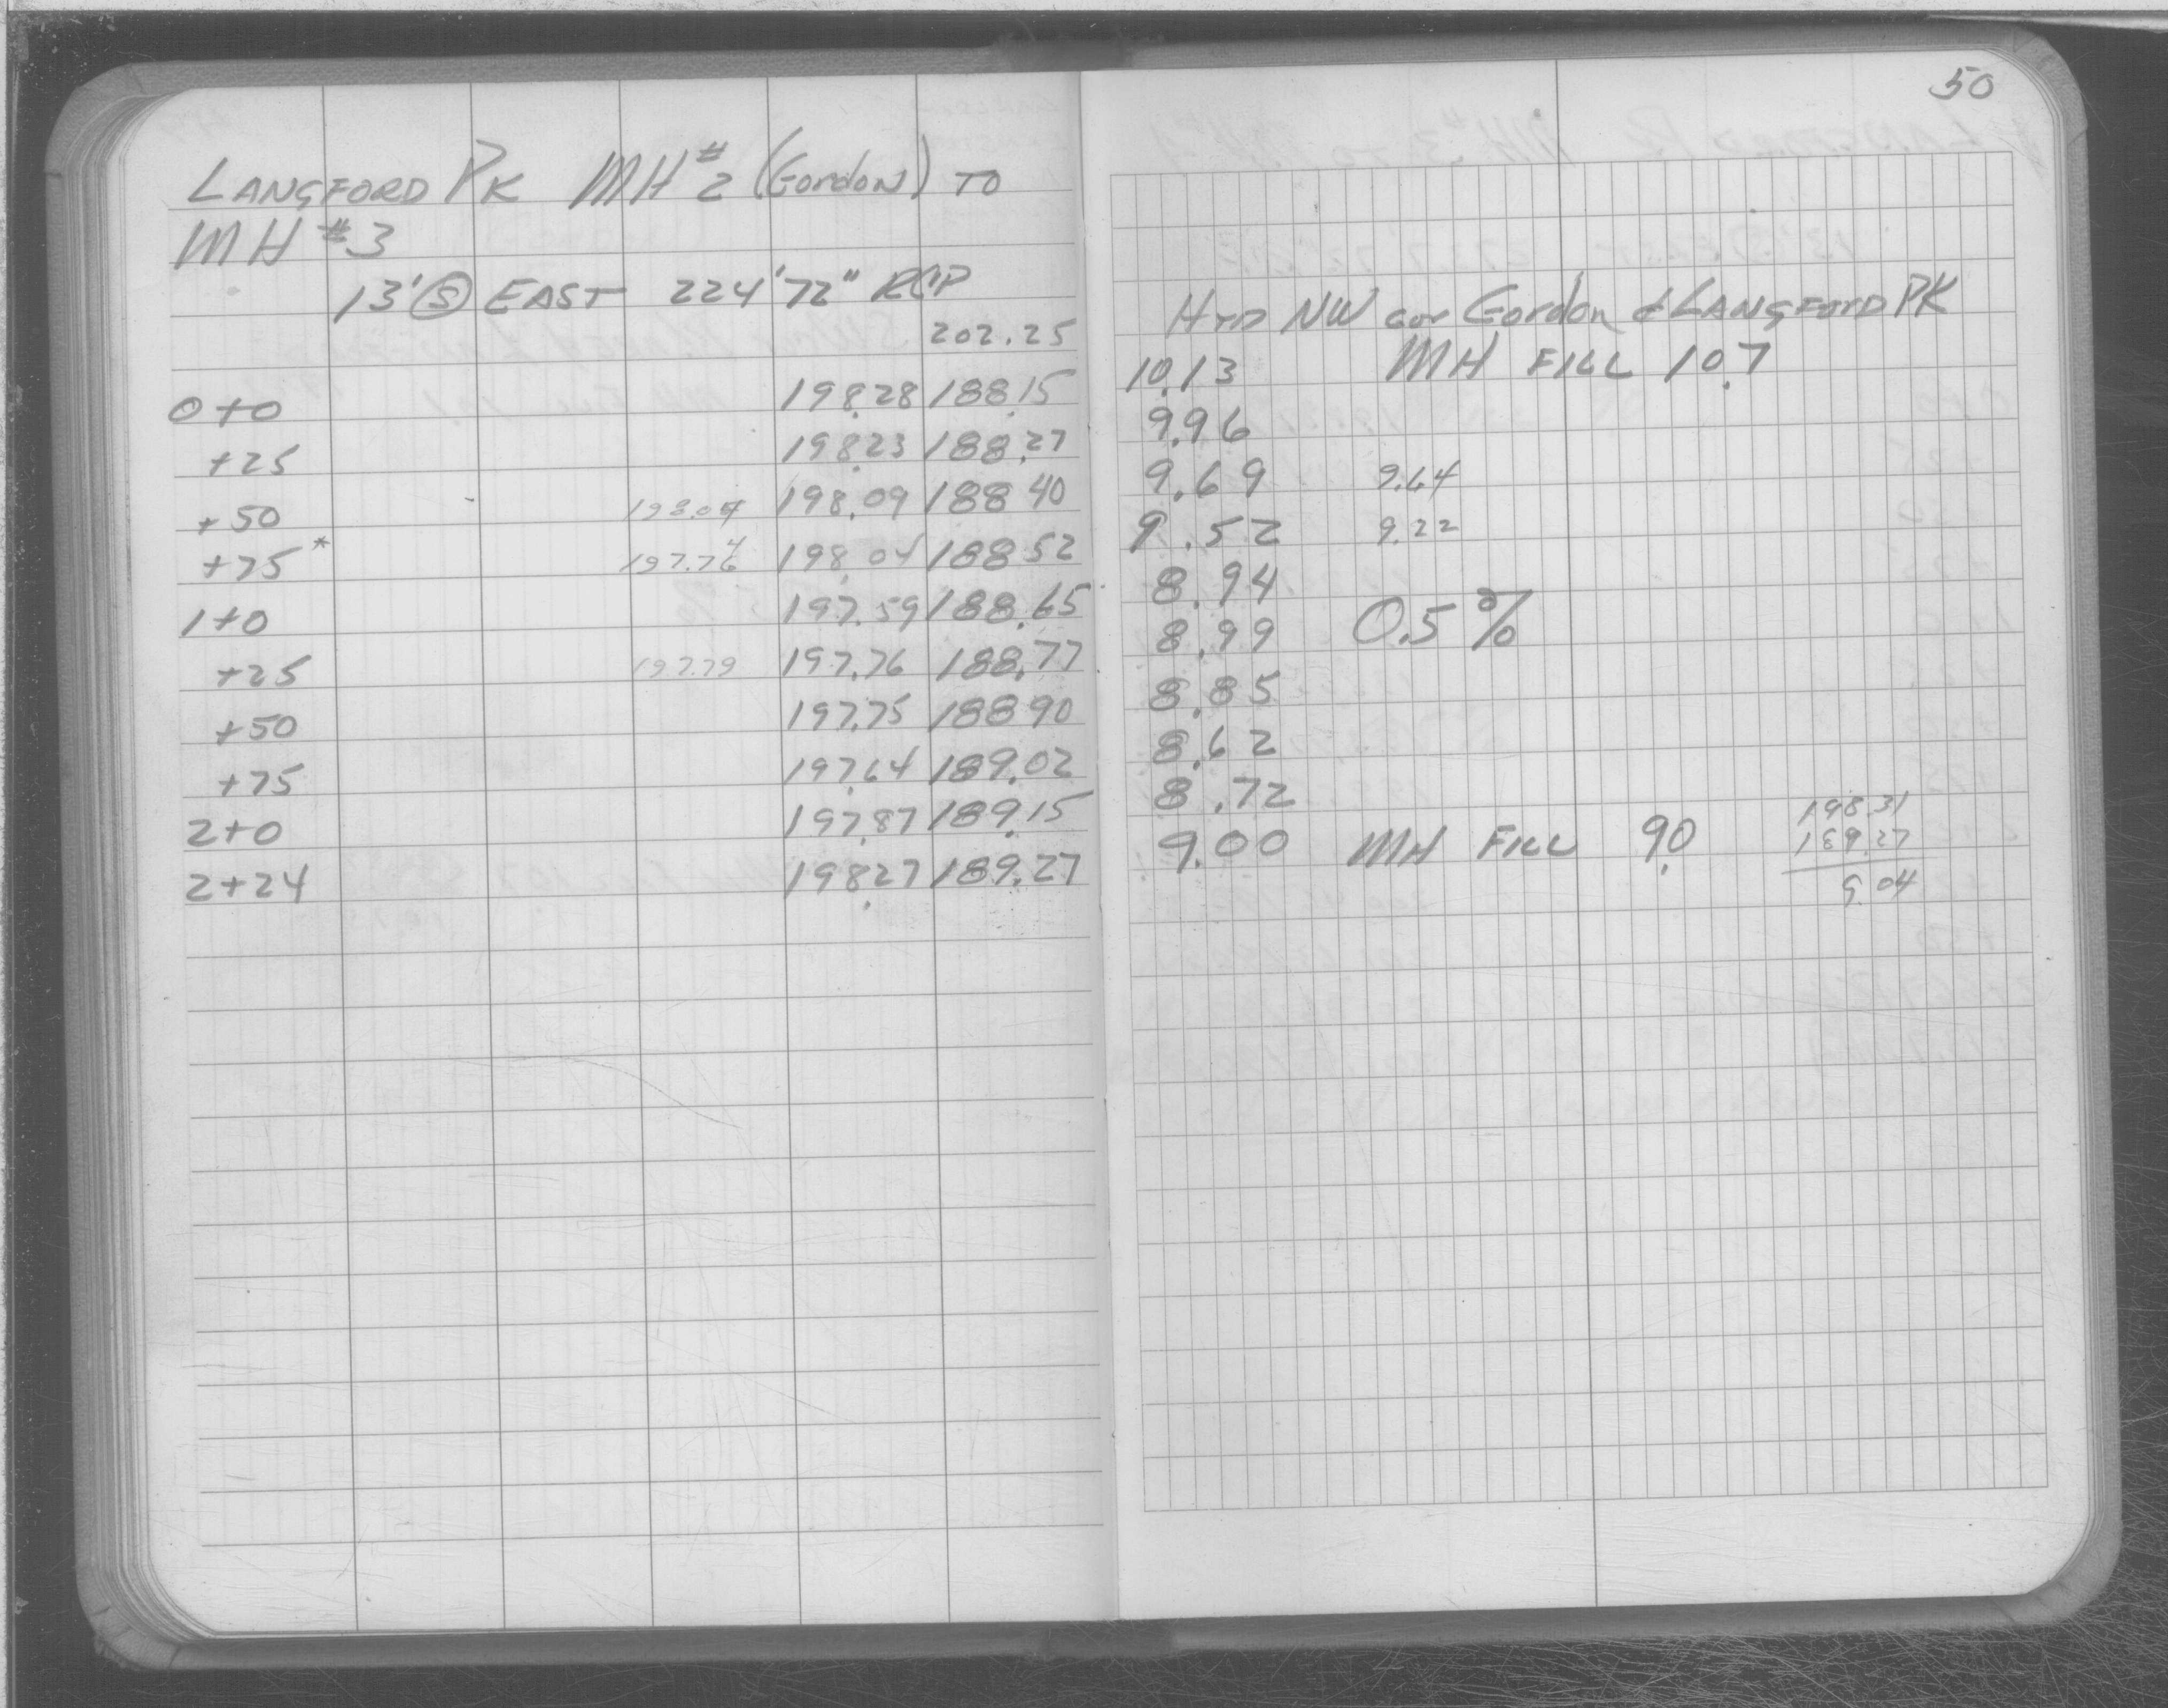 LANGFORD PK MH #2 (Gordon) TO
MH #3
13' Ⓢ EAST 224' 72" RCP
202.25
0+0 198.28 188.15
+25 198.23 188.27
+50 198.04 198.09 188 40
+75* 197.74 198.04 188 52
1+0 197.59 188.65
+25 197.79 197.76 188.77
+50 197.75 188 90
+75 197.64 189.02
2+0 197.87 189.15
2+24 198.27 189.27
50
HYD NW cor Gordon & LANGFORD PK
10.13 MH FILL 10.7
9.96
9.69 9.64
9.52 9.22
8.94
8.99 0.5%
8.85
8.62
8.72
9.00 MH FILL 9.0
198.31
189.27
9.04